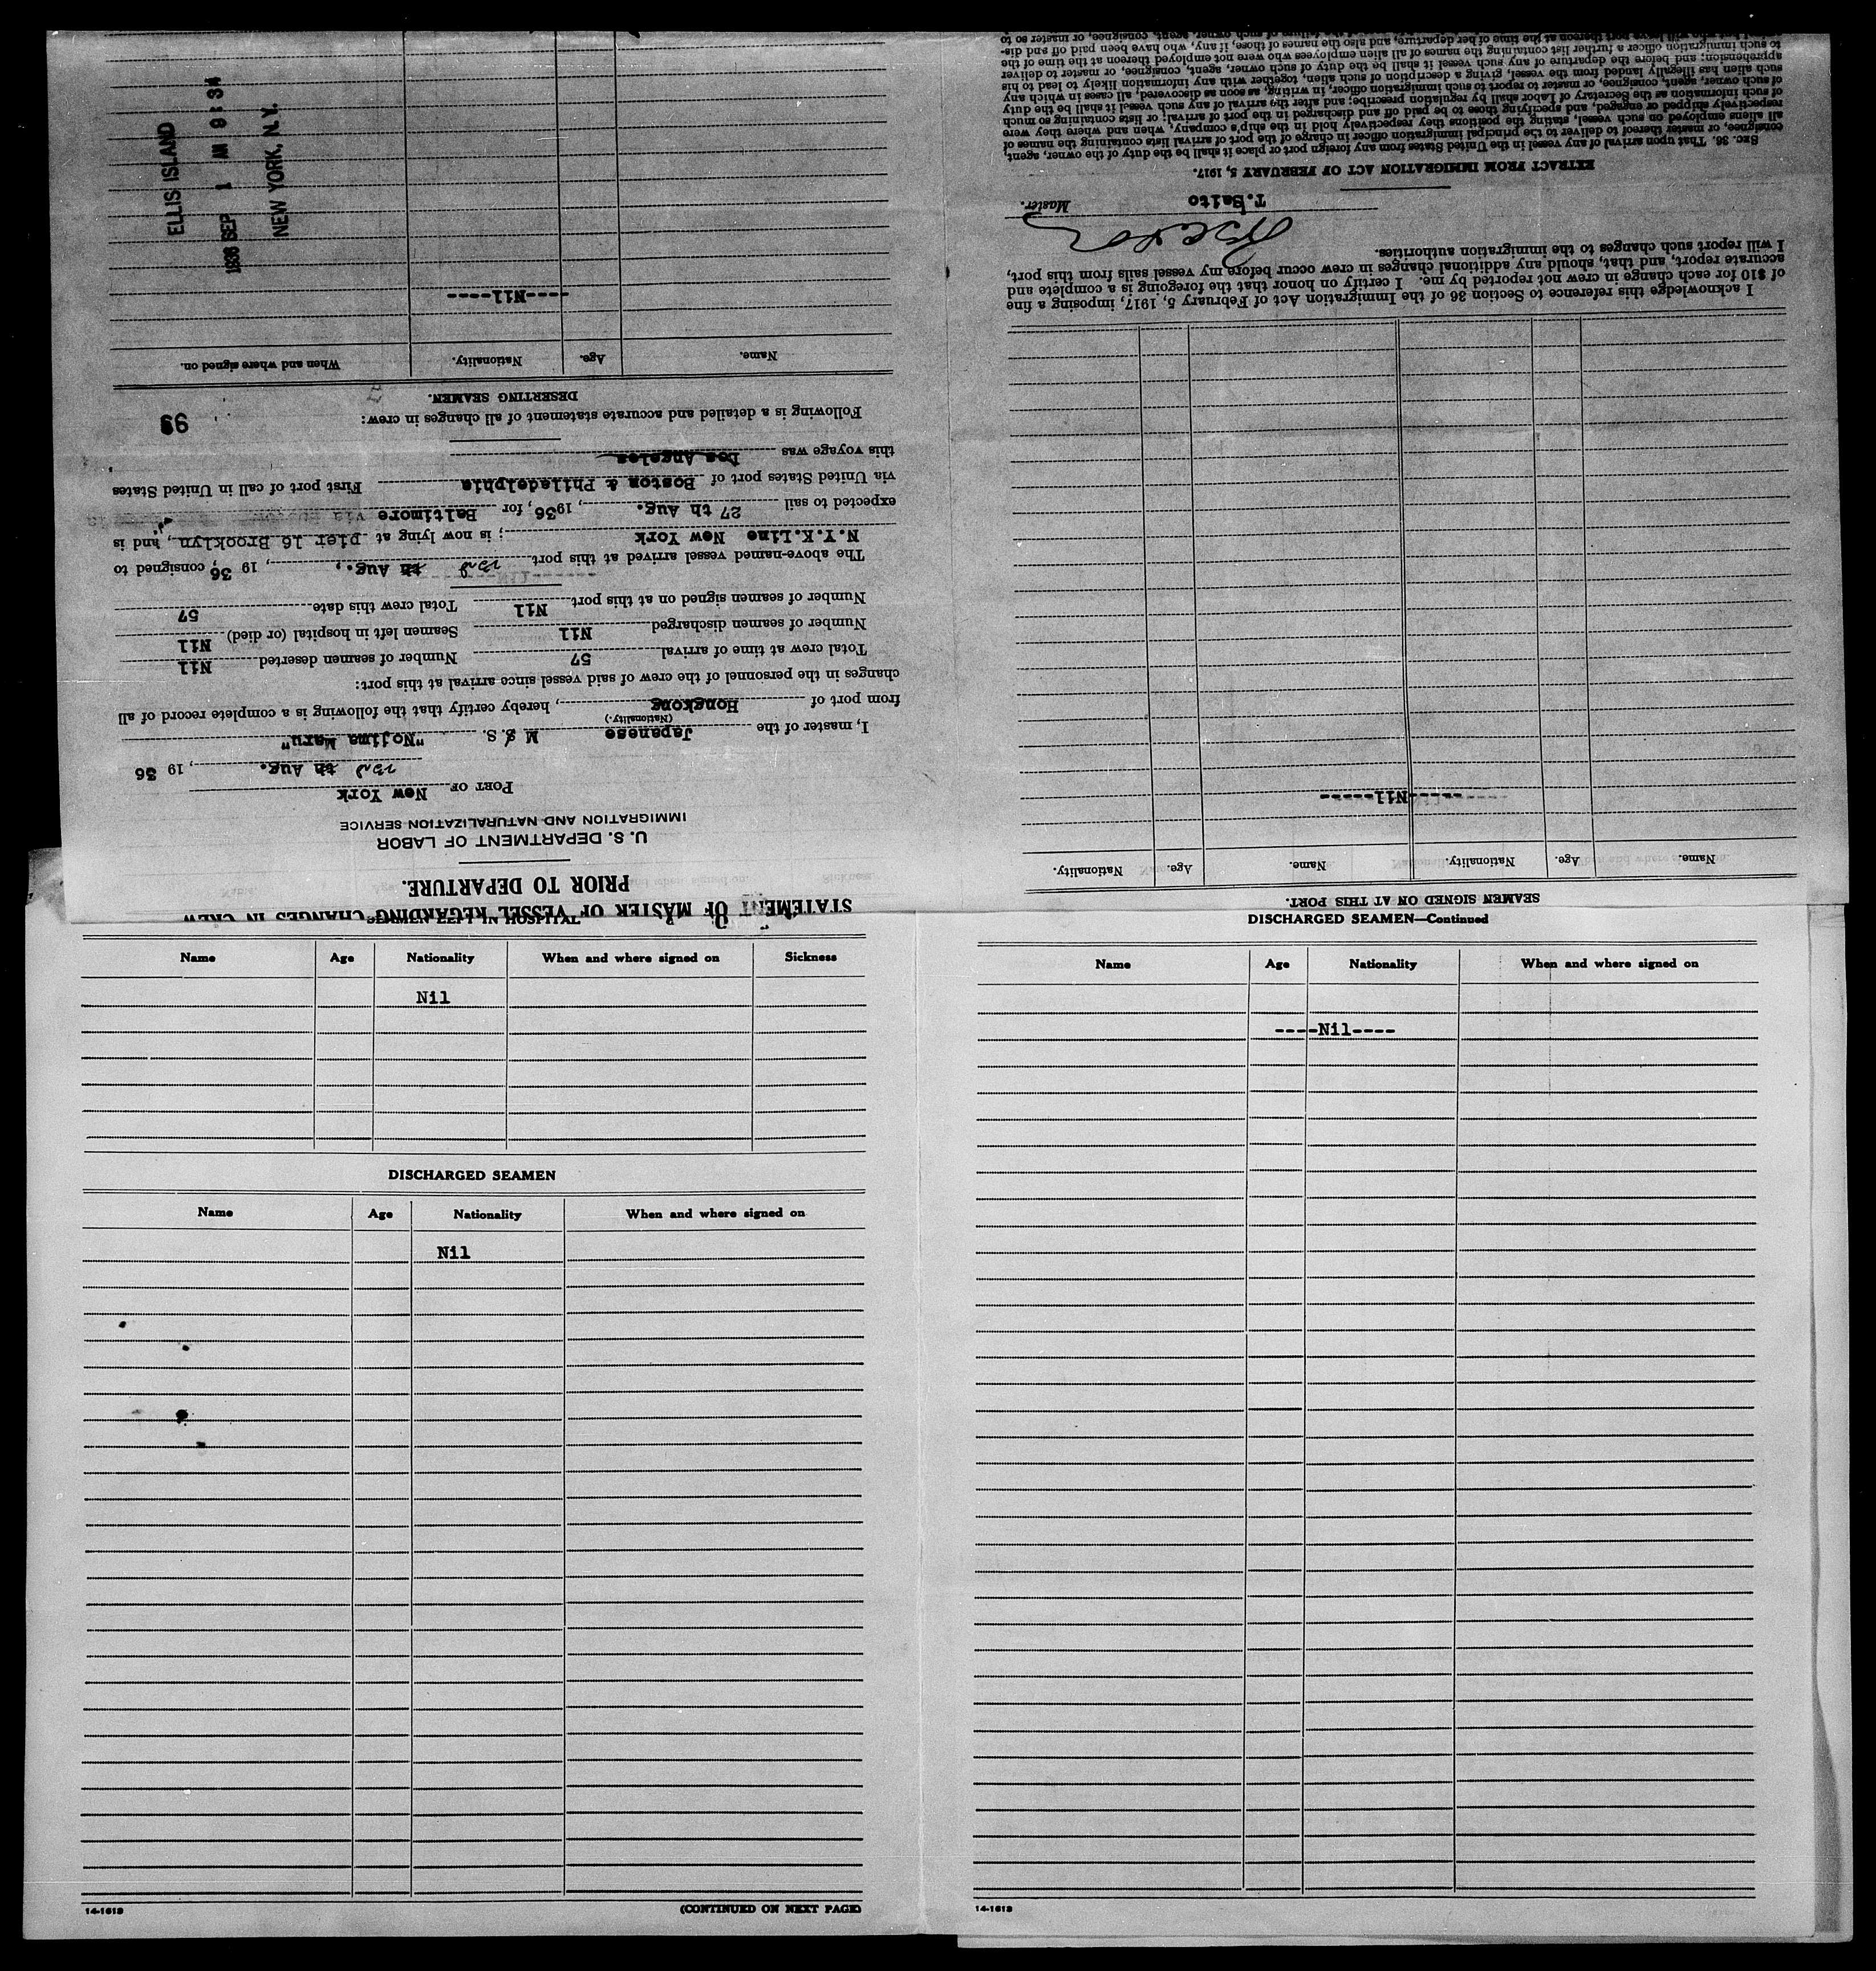 STATEMENT OF MASTER OF VESSEL REGARDING CHANGES IN CREW
PRIOR TO DEPARTURE.
U. S. DEPARTMENT OF LABOR
IMMIGRATION AND NATURALIZATION SERVICE
PORT OF New York
23d th Aug., 1936
I, master of the Japanese M S. S. "Nojima Maru"
(Nationality.)
from port of Hongkong, hereby certify that the following is a complete record of all
changes in the personnel of the crew of said vessel since arrival at this port:
Total crew at time of arrival 57 Number of seamen deserted Nil
Number of seamen discharged Nil Seamen left in hospital (or died) Nil
Number of seamen signed on at this port Nil Total crew this date 57
The above-named vessel arrived at this port 23d th Aug., 1936, consigned to
N.Y.K.Line New York; is now lying at pier 16 Brooklyn, and is
expected to sail 27 th Aug., 1936, for Baltimore via
via United States port of Boston & Philadelphia First port of call in United States
this voyage was Los Angeles
Following is a detailed and accurate statement of all changes in crew:
99
DESERTING SEAMEN.
Name. Age. Nationality. When and where signed on.
----Nil----
ELLIS ISLAND
1936 SEP 1 AM 9:34
NEW YORK, N.Y.
SEAMEN SIGNED ON AT THIS PORT.
Name. Age. Nationality. Name. Age. Nationality.
-----Nil-----
I acknowledge this reference to Section 36 of the Immigration Act of February 5, 1917, imposing a fine
of $10 for each change in crew not reported by me. I certify on honor that the foregoing is a complete and
accurate report, and that, should any additional changes in crew occur before my vessel sails from this port,
I will report such changes to the immigration authorities.
T.Saito Master.
EXTRACT FROM IMMIGRATION ACT OF FEBRUARY 5, 1917.
SEC. 36. That upon arrival of any vessel in the United States from any foreign port or place it shall be the duty of the owner, agent,
consignee, or master thereof to deliver to the principal immigration officer in charge of the port of arrival lists containing the names of
all aliens employed on such vessel, stating the positions they respectively hold in the ship's company, when and where they were
respectively shipped or engaged, and specifying those to be paid off and discharged in the port of arrival; or lists containing so much
of such information as the Secretary of Labor shall by regulation prescribe; and after the arrival of any such vessel it shall be the duty
of such owner, agent, consignee, or master to report to such immigration officer, in writing, as soon as discovered, all cases in which any
such alien has illegally landed from the vessel, giving a description of such alien, together with any information likely to lead to his
apprehension; and before the departure of any such vessel it shall be the duty of such owner, agent, consignee, or master to deliver
to such immigration officer a further list containing the names of all alien employees who were not employed thereon at the time of the
arrival but who will leave port thereon at the time of her departure, and also the names of those, if any, who have been paid off and dis-
SEAMEN LEFT IN HOSPITAL
Name Age Nationality When and where signed on Sickness
Nil
DISCHARGED SEAMEN
Name Age Nationality When and where signed on
Nil
14-1613 (CONTINUED ON NEXT PAGE)
DISCHARGED SEAMEN—Continued
Name Age Nationality When and where signed on
----Nil----
14-1613